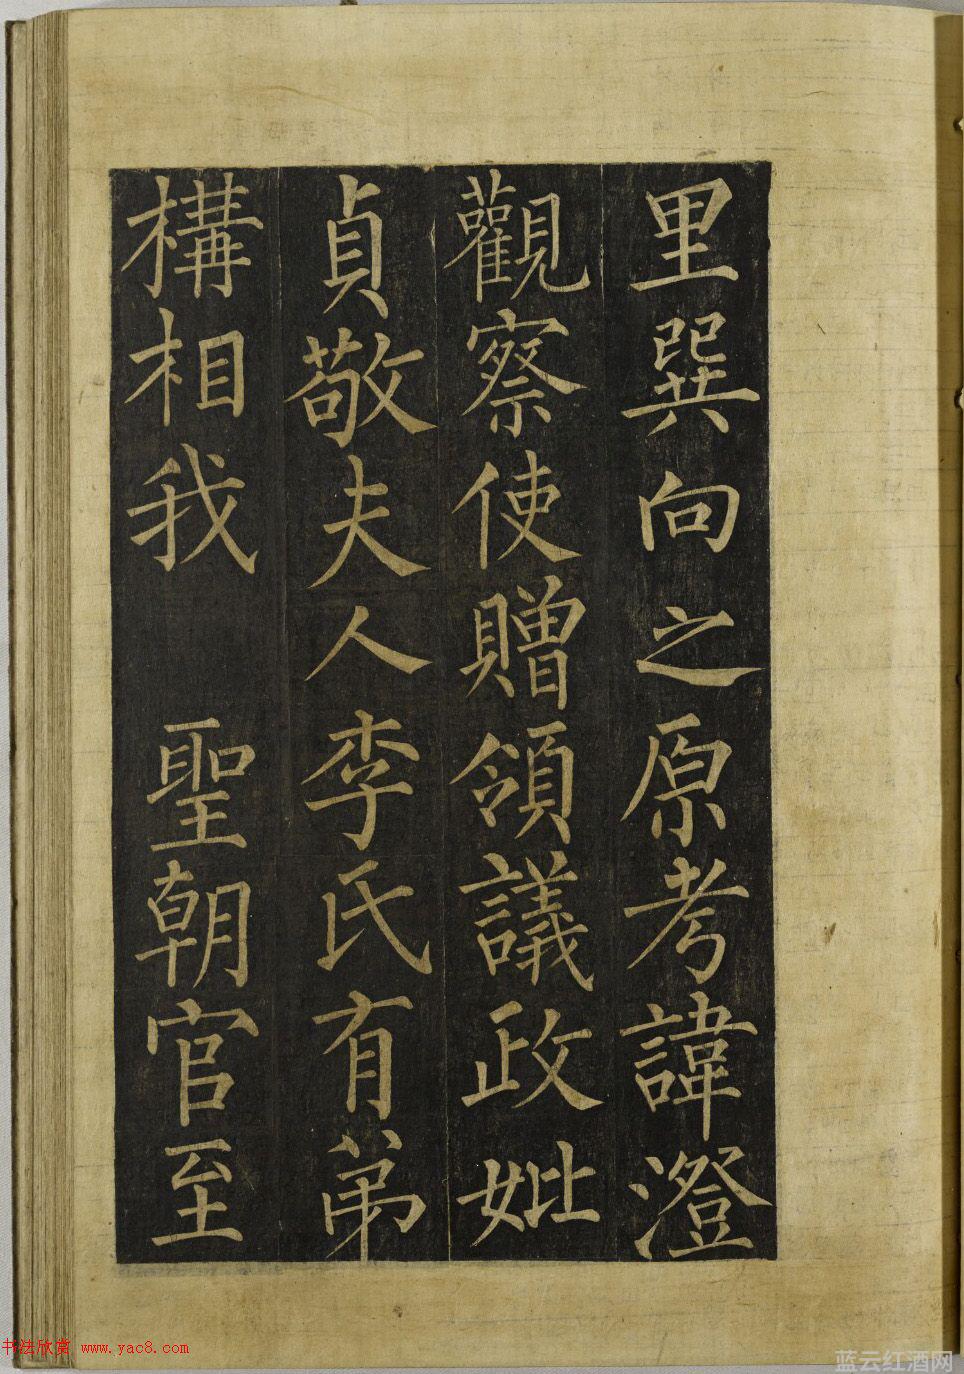 里巽向之原考諱澄
觀察使贈領議政妣
貞敬夫人李氏有弟
構相我 聖朝官至
书法欣赏 www.yac8.com
蓝云红酒网